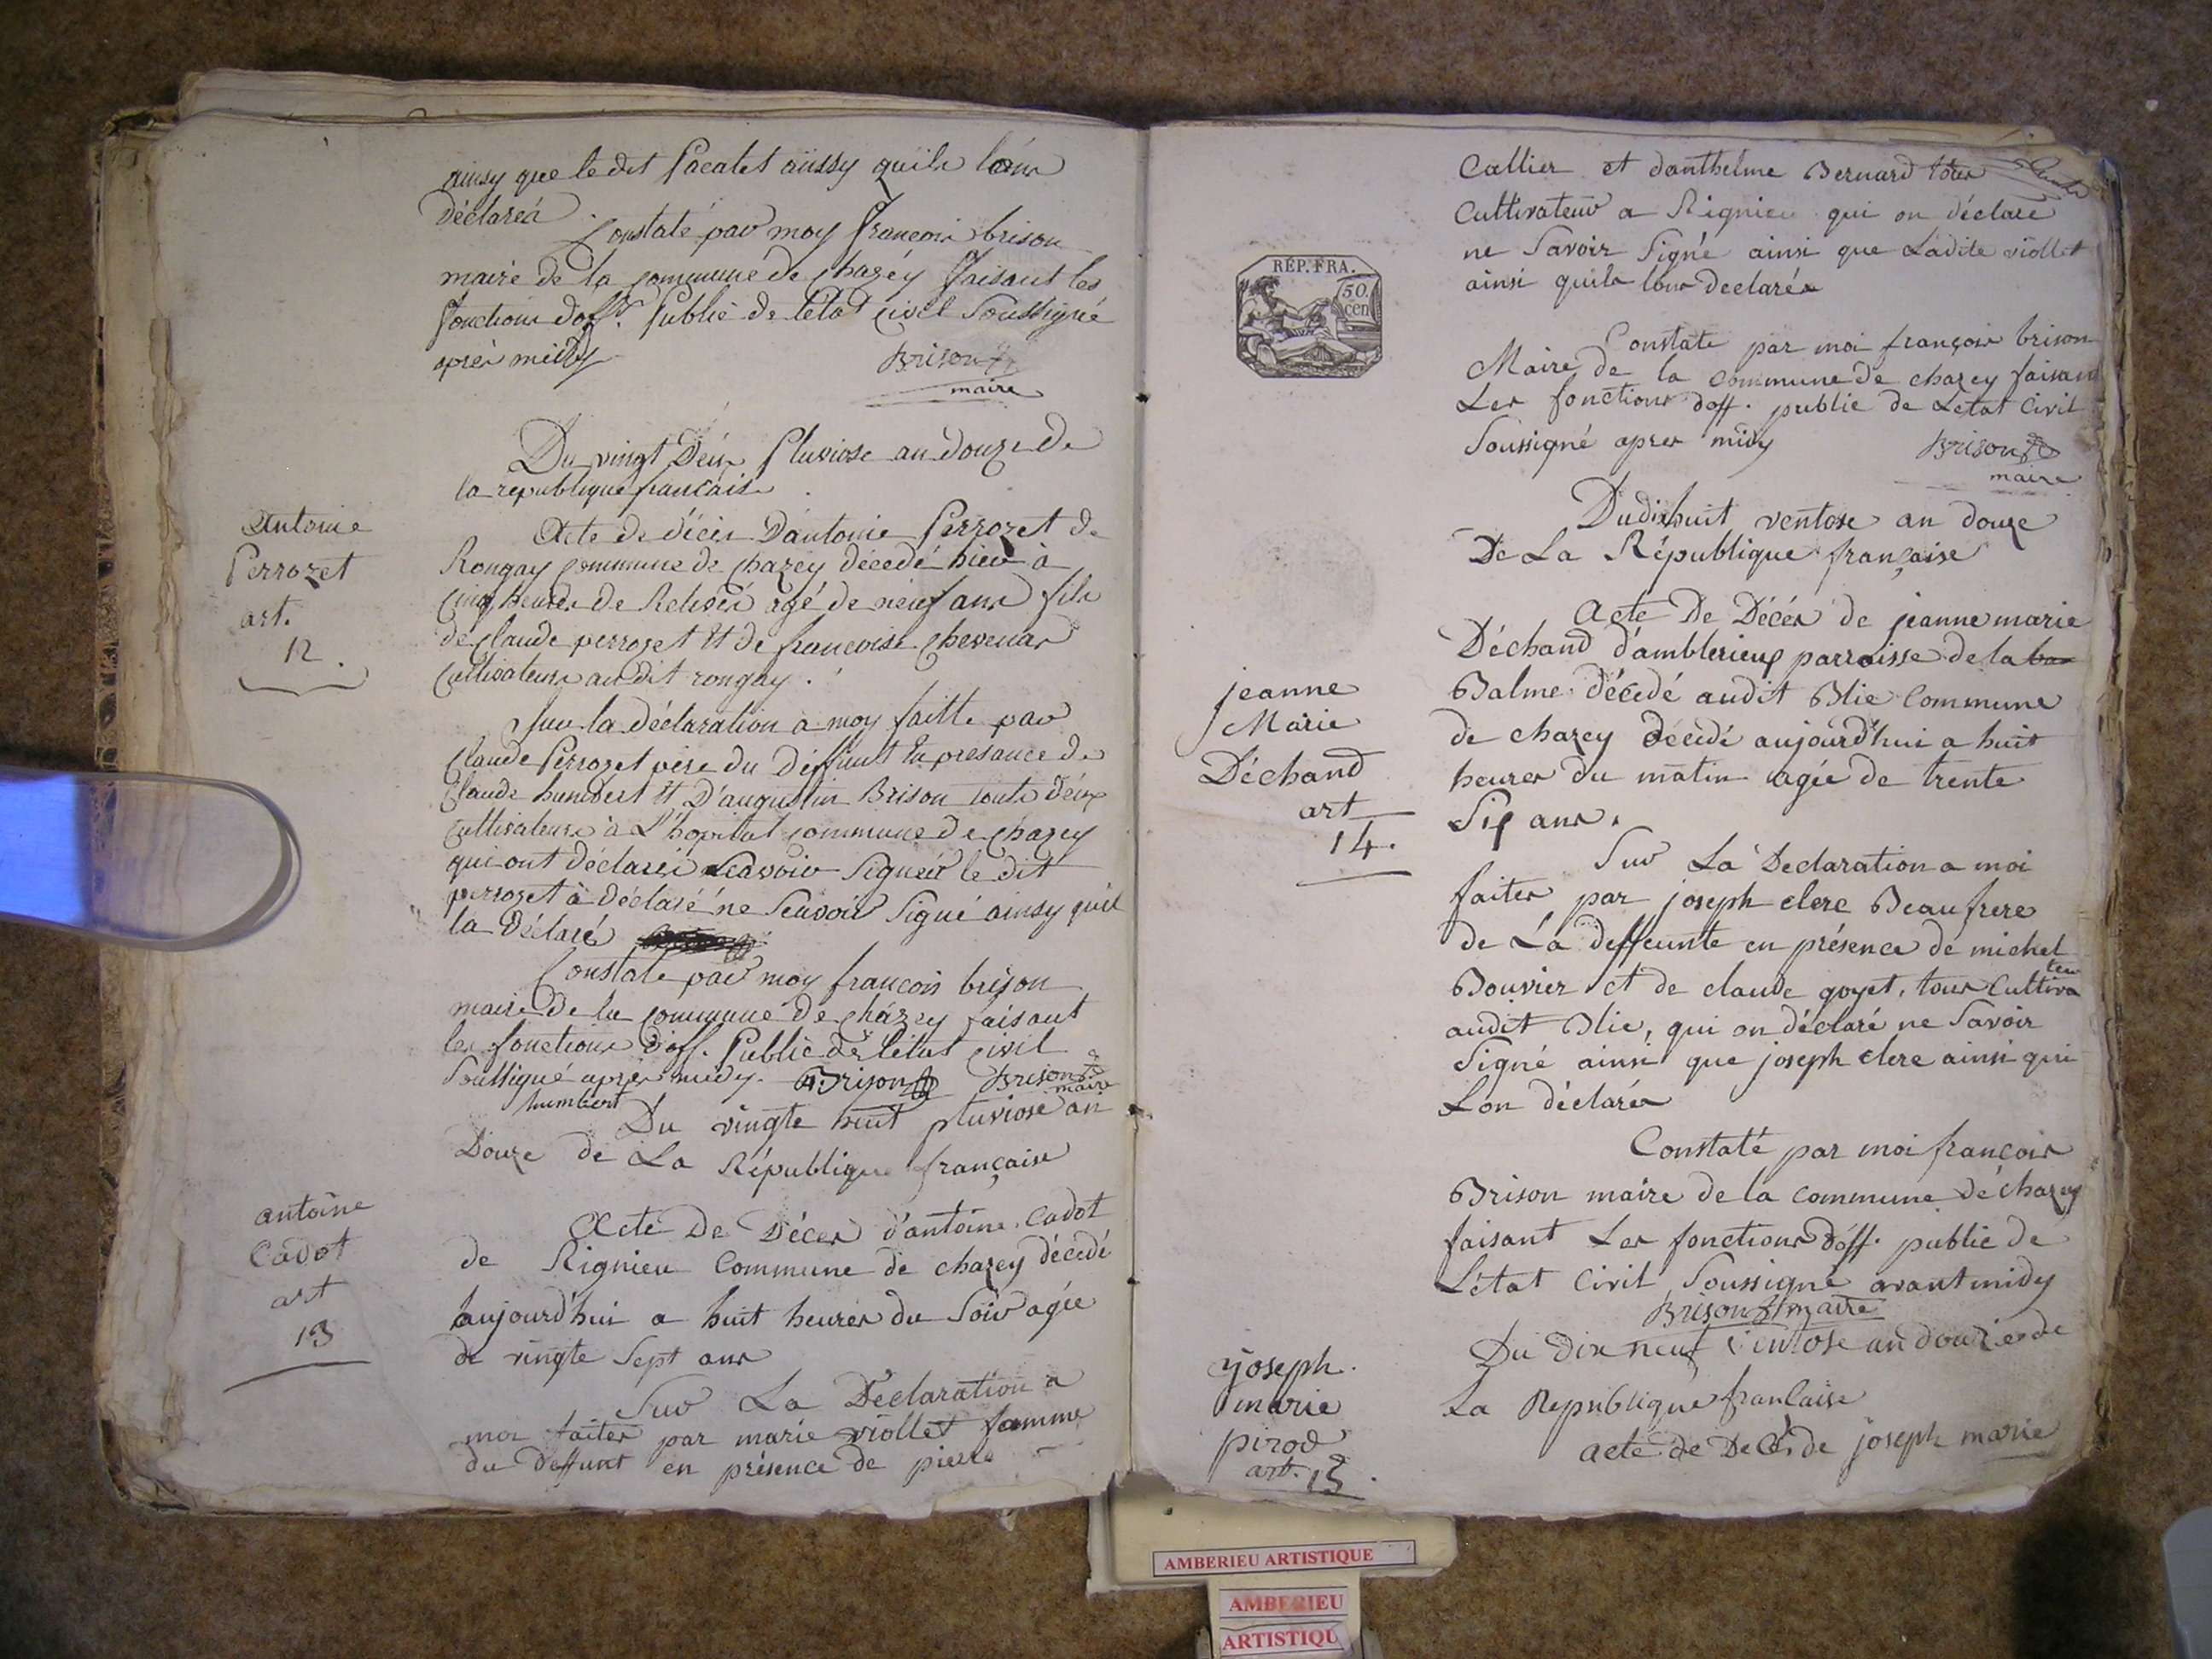 ainsy que ledit Pacalet aüssy quils lons
déclarés
Constaté par moy françois brison
maire de la commune de chazéy faisant les
fonctions doff.r Public de létat civil Soussigné
après midy
Brison
maire
Du vingt Deux Pluviose an douze de
la république francaise
Antonie
Perrozet
art.
12.
Acte de décès Dantonie Perrozet de
Rongay commune de chazey décedé hier à
cinq heures de Relevés agé de neuf ans fils
de claude perrozet Et de francoise chevenas
cultivateurs audit rongay.
Sur la déclaration a moy faitte par
claude Perrozet père du deffunt En presance de
Claude humbert Et D'augustin Brison touts deux
cultivateurs à L'hopital commune de chazey
qui ont déclarés Scavoir Signér le dit
perrozet à déclaré ne Scavoir Signé ainsy quil
la Déclaré
Constaté par moy francois brison
maire de la commune de cházey faisant
les fonctions d'off. Public de létat civil
Soussigné apres midy. A. Brison Brison
maire
humbert
Du vingte huit pluviose an
Douze de La République française
antoine
Cadot
art
13
Acte De Décés d'antoine Cadot
de Rignieu Commune de chazey décedé
aujourd'hui a huit heures du Soir agée
de vingte Sept ans
Sur La Déclaration a
moi faites par marie viollet famme
du deffunt en présence de pierre
REP. FRA.
50.
cen
Callier et danthelme Bernard tous
Cultivateur a Rignieu qui on déclare
ne Savoir Signé ainsi que Ladite viollet
ainsi quils lons declarés
Constate par moi françois brison
Maire de la Commune de chazey faisant
Les fonctions doff. public de Létat Civil
Soussigné apres midy
Brison
maire
Dudixhuit ventose an douze
De La République française
jeanne
Marie
Déchand
art
14.
Acte De Décés de jeanne marie
Déchand d'amblerieux parroisse de la ba
Balme décedé audit Blie Commune
de chazey décédé aujourd'hui a huit
heures du matin agée de trente
Six ans.
Sur La Declaration a moi
faites par joseph clerc Beaufrere
de La deffeunte en présence de michel
Bouvier et de claude goyet, tous Cultiva
teu
audit Blie, qui on déclaré ne Savoir
Signé ainsi que joseph clerc ainsi qui
Lon déclarés
Constaté par moi françois
Brison maire de la Commune de chazey
faisant Les fonctions doff. public de
Létat Civil Soussigné avant midy
Brison maire
Du Dix neuf ventose an douze de
La Republique francaise
joseph.
marie
pirod
art. 15.
acte de Decés de joseph marie
AMBERIEU ARTISTIQUE
AMBERIEU
ARTISTIQU